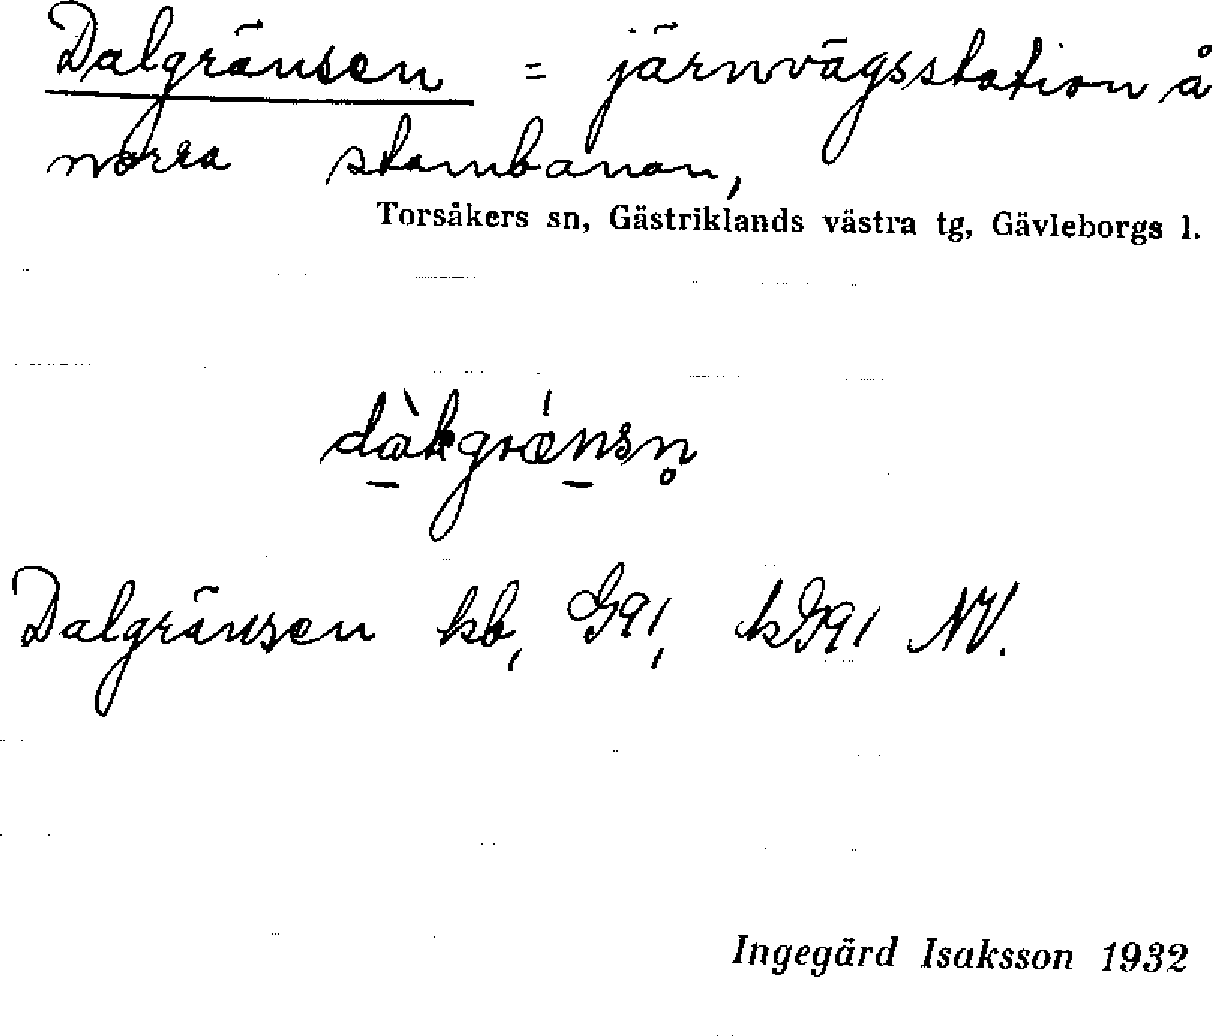 Dalgränsen = järnvägsstation å
norra stambanan,
Torsåkers sn, Gästriklands västra tg, Gävleborgs l.
dàlgrǽnsn̥
Dalgränsen kb, G91, kG91 NV.
Ingegärd Isaksson 1932